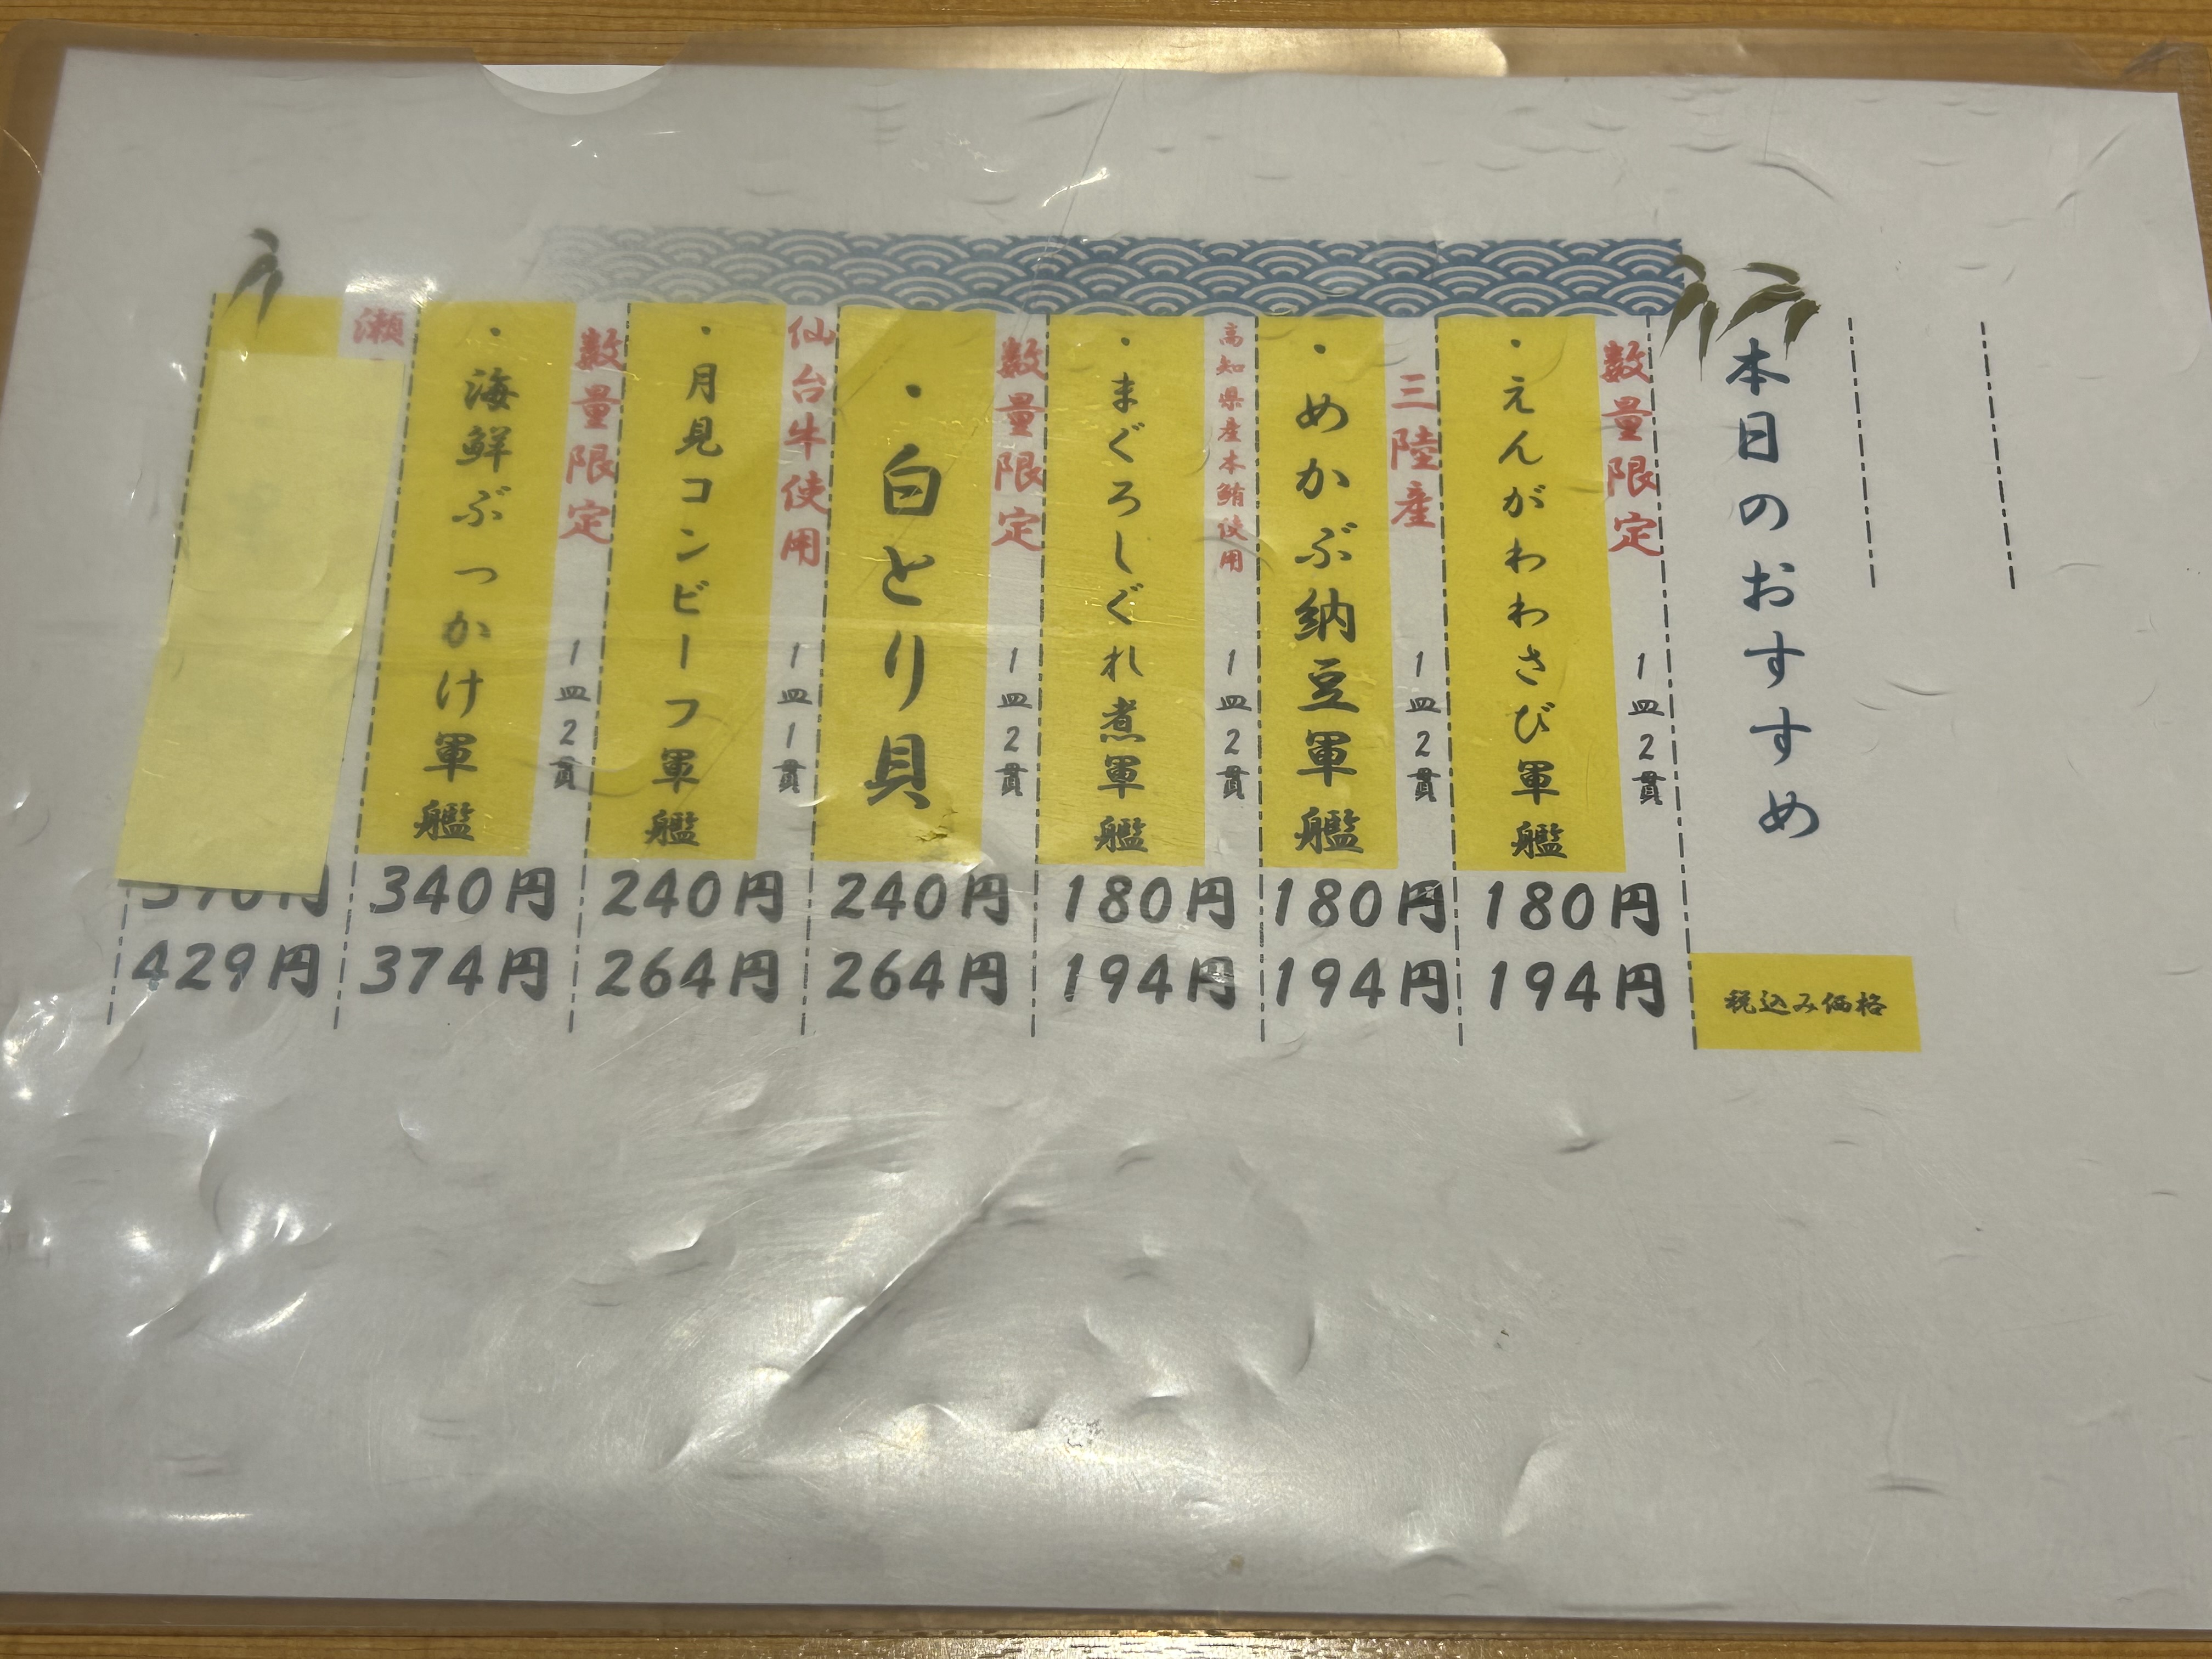 本日のおすすめ
税込み価格
数量限定
1皿2貫
・えんがわわさび軍艦
180円
194円
三陸産
1皿2貫
・めかぶ納豆軍艦
180円
194円
高知県産本鮪使用
1皿2貫
・まぐろしぐれ煮軍艦
180円
194円
数量限定
1皿2貫
・白とり貝
240円
264円
仙台牛使用
1皿1貫
・月見コンビーフ軍艦
240円
264円
数量限定
1皿2貫
・海鮮ぶっかけ軍艦
340円
374円
瀬
429円